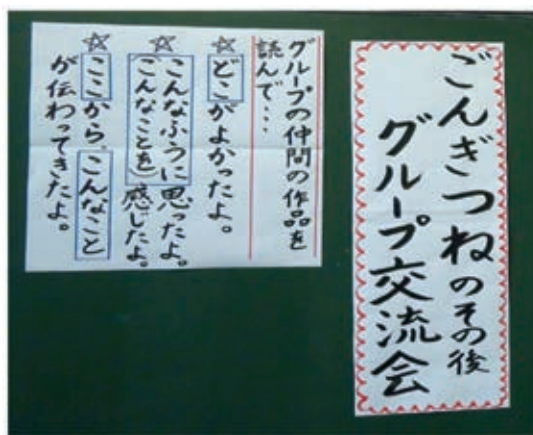 ごんぎつねのその後
グループ交流会
グループの仲間の作品を
読んで・・・
☆どこがよかったよ。
☆こんなふうに思ったよ。
(こんなことを)感じたよ。
☆ここから、こんなこと
が伝わってきたよ。